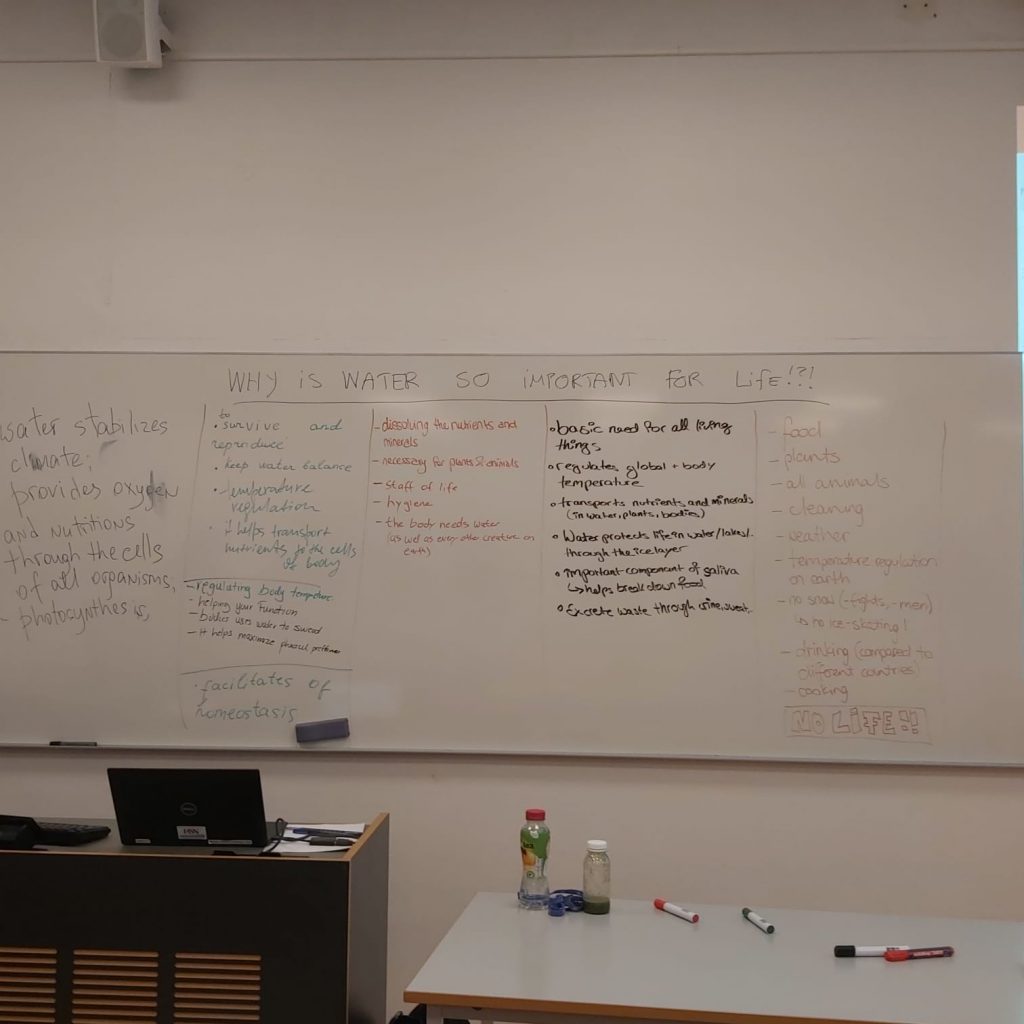 WHY iS WATER SO iMPORTANT FOR LiFE!?!
water stabilizes
climate;
provides oxygen
and nutritions
through the cells
of all organisms,
- photosynthesis,
to
• survive and
reproduce
• keep water balance
• temperature
regulation
• it helps transport
nutrients to the cells
of body
- regulating body temperature
- helping your Function
- bodies uses water to sweat
- It helps maximize
• facilitates of
homeostasis
- dissolving the nutrients and
minerals
- necessary for plants & animals
- staff of life
- hygiene
- the body needs water
(as well as every other creature on
earth)
• basic need for all living
things
• regulates global + body
temperature
• transports nutrients and minerals
(in water, plants, bodies)
• Water protects life in water/lakes/..
through the ice layer
• important component of saliva
↳ helps break down food
• Excrete waste through urine, sweat..
- food
- plants
- all animals
- cleaning
- weather
- temperature regulation
on earth
- no snow (-fights, -men)
↳ no ice-skating!
- drinking (compared to
different countries)
- cooking
NO LiFE!!
DELL